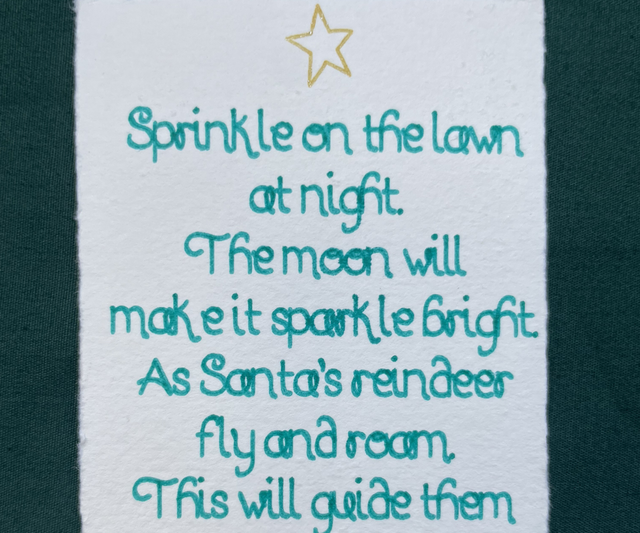 Sprinkle on the lawn
at night.
The moon will
make it sparkle bright.
As Santa's reindeer
fly and roam.
This will guide them